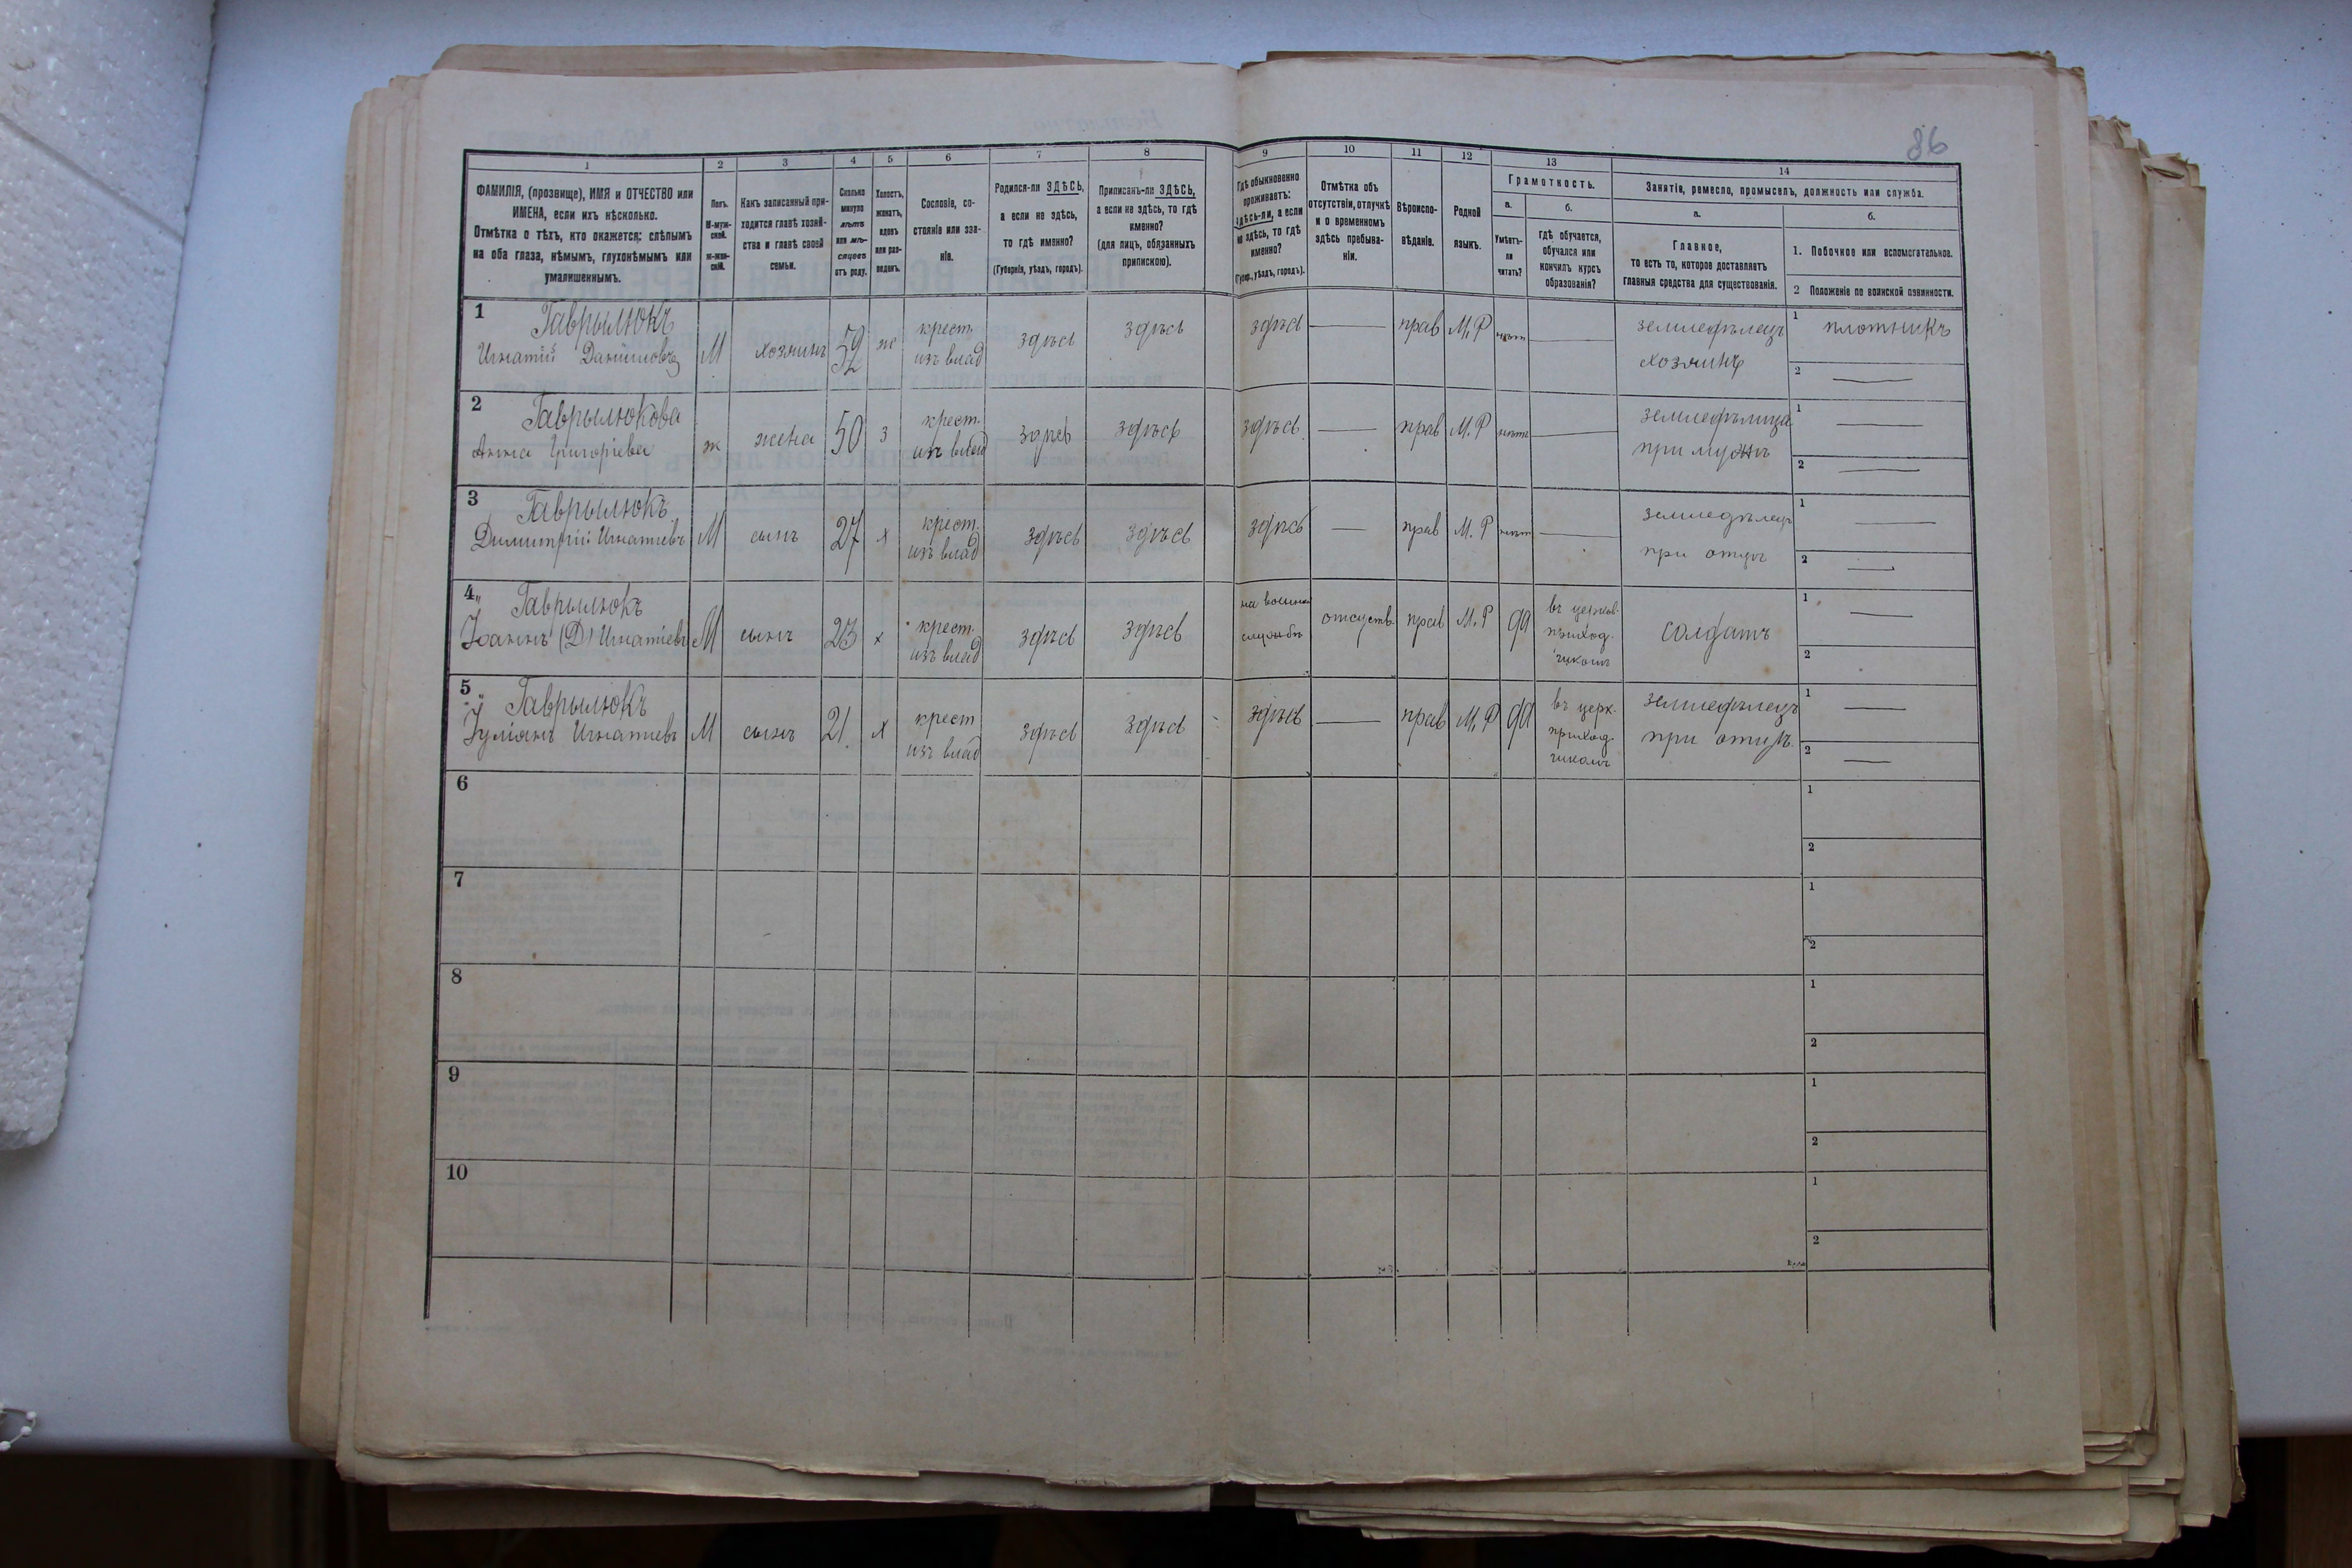 86
1 2 3 4 5 6 7 8 9 10 11 12 13 14
ФАМИЛІЯ, (прозвище), ИМЯ и ОТЧЕСТВО или
ИМЕНА, если ихъ нѣсколько.
Отмѣтка о тѣхъ, кто окажется: слѣпымъ
на оба глаза, нѣмымъ, глухонѣмымъ или
умалишеннымъ.
Полъ.
М-муж-
ской.
ж-жен-
скій.
Какъ записанный при-
ходится главѣ хозяй-
ства и главѣ своей
семьи.
Сколько
минуло
лѣтъ
или мѣ-
сяцевъ
отъ роду.
Холостъ,
женатъ,
вдовъ
или раз-
веденъ.
Сословіе, со-
стояніе или зва-
ніе.
Родился-ли ЗДѢСЬ,
а если не здѣсь,
то гдѣ именно?
(Губернія, уѣздъ, городъ).
Приписанъ-ли ЗДѢСЬ,
а если не здѣсь, то гдѣ
именно?
(для лицъ, обязанныхъ
припискою).
Гдѣ обыкновенно
проживаетъ:
здѣсь-ли, а если
не здѣсь, то гдѣ
именно?
(Губер., уѣздъ, городъ).
Отмѣтка объ
отсутствіи, отлучкѣ
и о временномъ
здѣсь пребыва-
ніи.
Вѣроиспо-
вѣданіе.
Родной
языкъ.
Грамотность.
а.
Умѣетъ-
ли
читать?
б.
Гдѣ обучается,
обучался или
кончилъ курсъ
образованія?
Занятія, ремесло, промыселъ, должность или служба.
а.
Главное,
то есть то, которое доставляетъ
главныя средства для существованія.
б.
1. Побочное или вспомогательное.
2 Положеніе по воинской повинности.
1 Гаврылюкъ
Игнатій Даниловъ
М
хозяинъ
59
ж
крест.
изъ влад
здѣсь
здѣсь
здѣсь
прав
М.Р
нѣтъ
земледѣлецъ
хозяинъ
1 плотникъ
2
2 Гаврылюкова
Анна Григоріева
ж
жена
50
з
крест.
изъ влад
здѣсь
здѣсь
здѣсь
прав
М.Р
нѣтъ
земледѣлица
при мужѣ
1
2
3 Гаврылюкъ
Димитрій Игнатіевъ
М
сынъ
27
х
крест.
изъ влад
здѣсь
здѣсь
здѣсь
прав
М.Р
нѣтъ
земледѣлецъ
при отцѣ
1
2
4 Гаврылюкъ
Іоаннъ (Д) Игнатіевъ
М
сынъ
23
х
крест.
изъ влад
здѣсь
здѣсь
на военной
службѣ
отсутств.
прав
М.Р
да
въ церков-
приход.
школѣ
солдатъ
1
2
5 Гаврылюкъ
Іуліанъ Игнатіевъ
М
сынъ
21.
х
крест
изъ влад
здѣсь
здѣсь
здѣсь
прав
М.Р
да
въ церк.
приход.
школѣ
земледѣлецъ
при отцѣ.
1
2
6
1
2
7
1
2
8
1
2
9
1
2
10
1
2